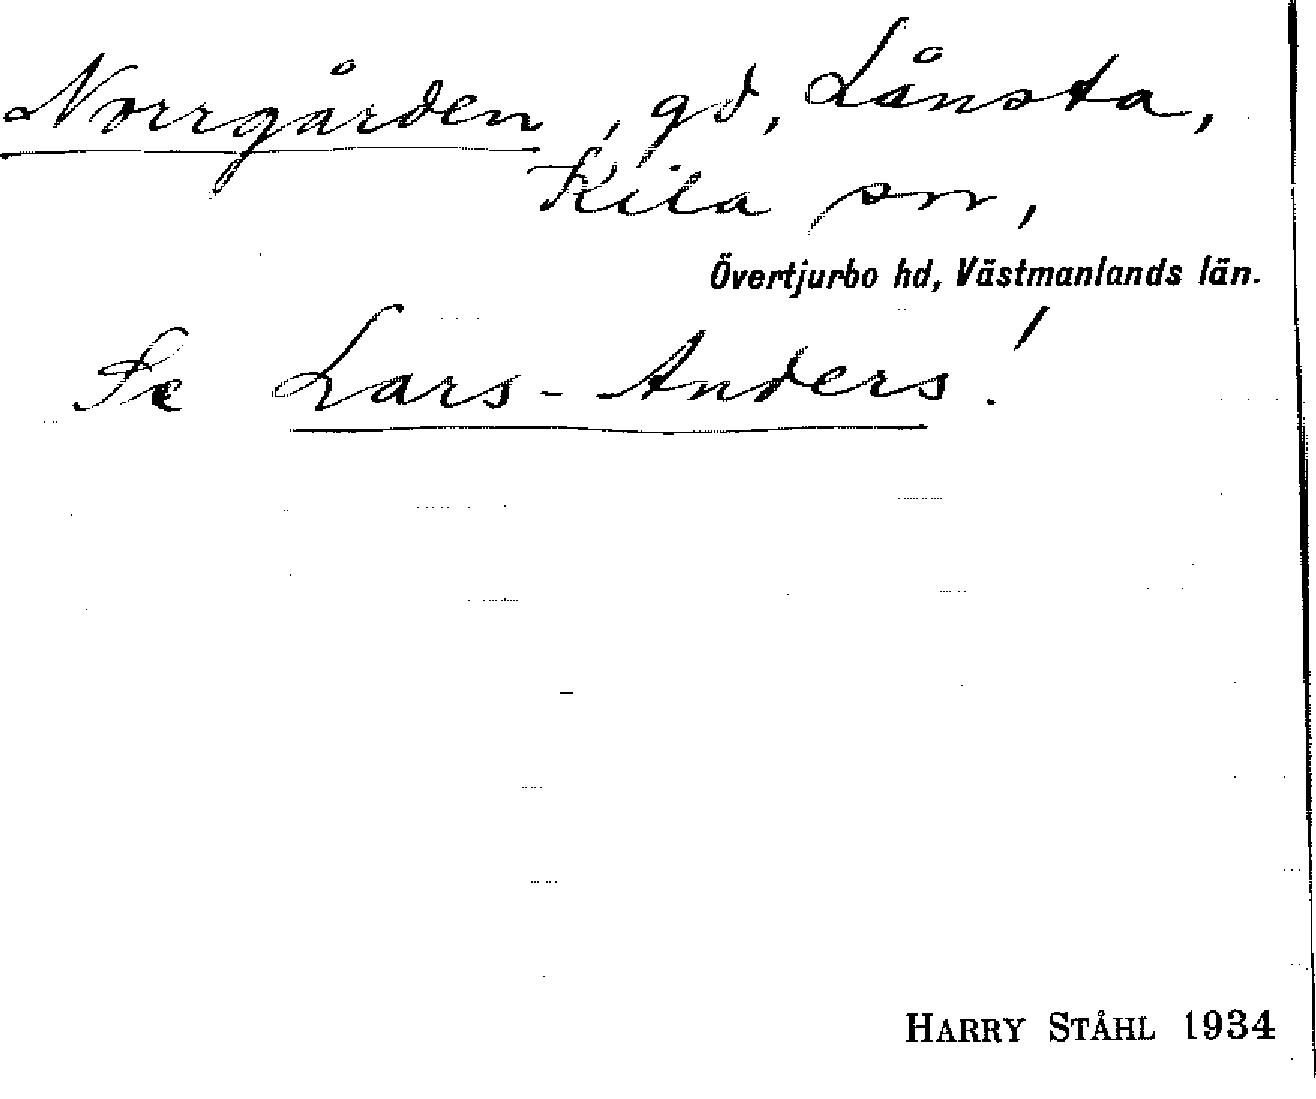 Norrgården, gd, Lånsta,
Kila sn,
Övertjurbo hd, Västmanlands län.
Se Lars-Anders!
HARRY STÅHL 1934